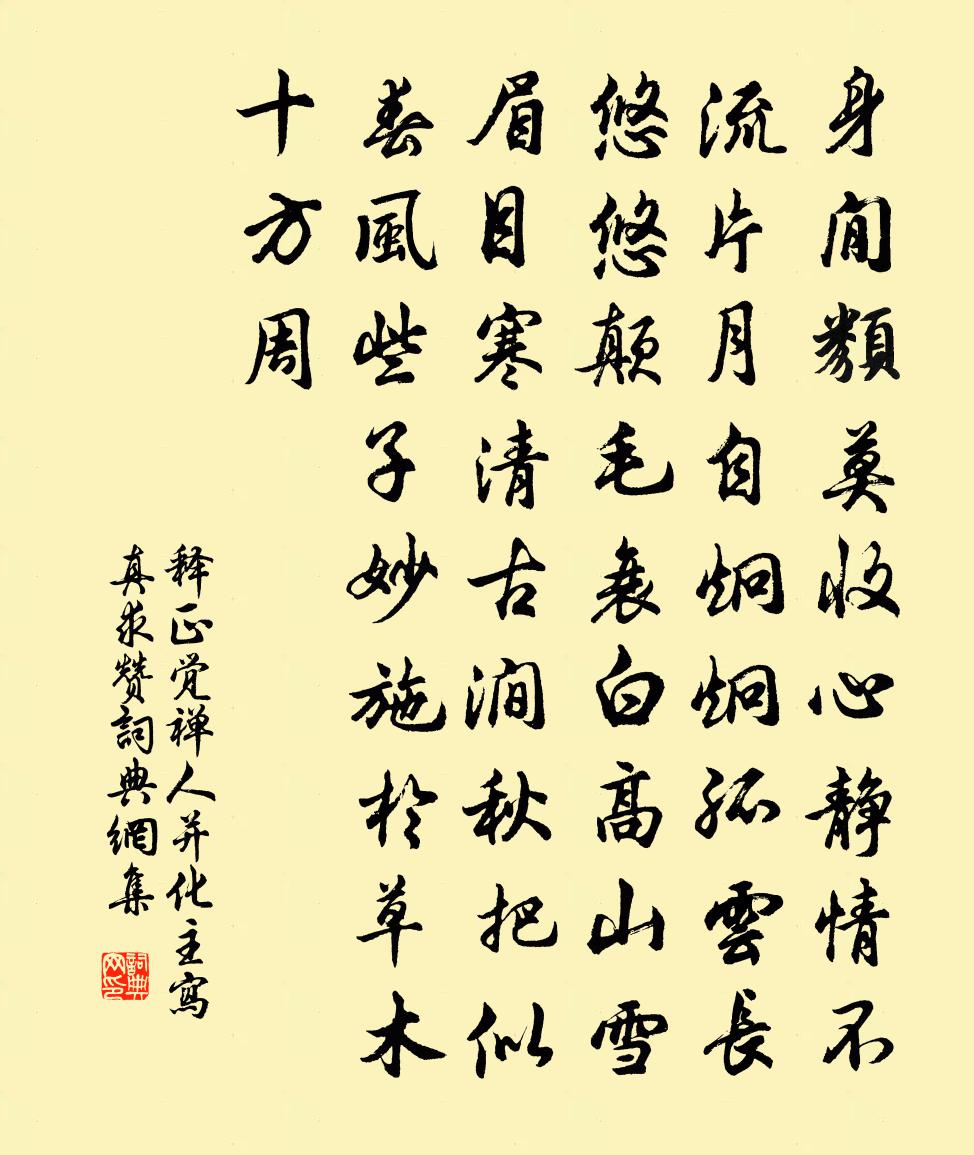 身閒纇莫收心靜情不
流片月自炯炯孤雲長
悠悠顛毛衰白高山雪
眉目寒清古澗秋把似
春風些子妙施於草木
十方周
释正觉禅人并化主寫
真求赞詞典網集
詞典网印